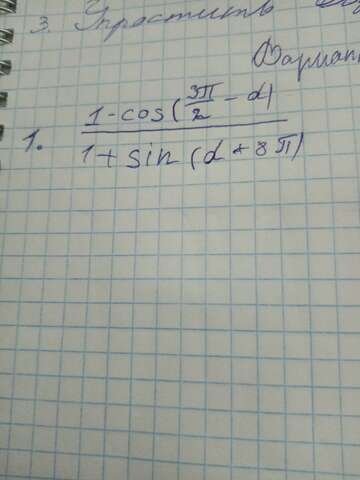 3. Упростить
Вариант
1. \frac{1-cos(\frac{3π}{2}-α)}{1+sin(α+8π)}